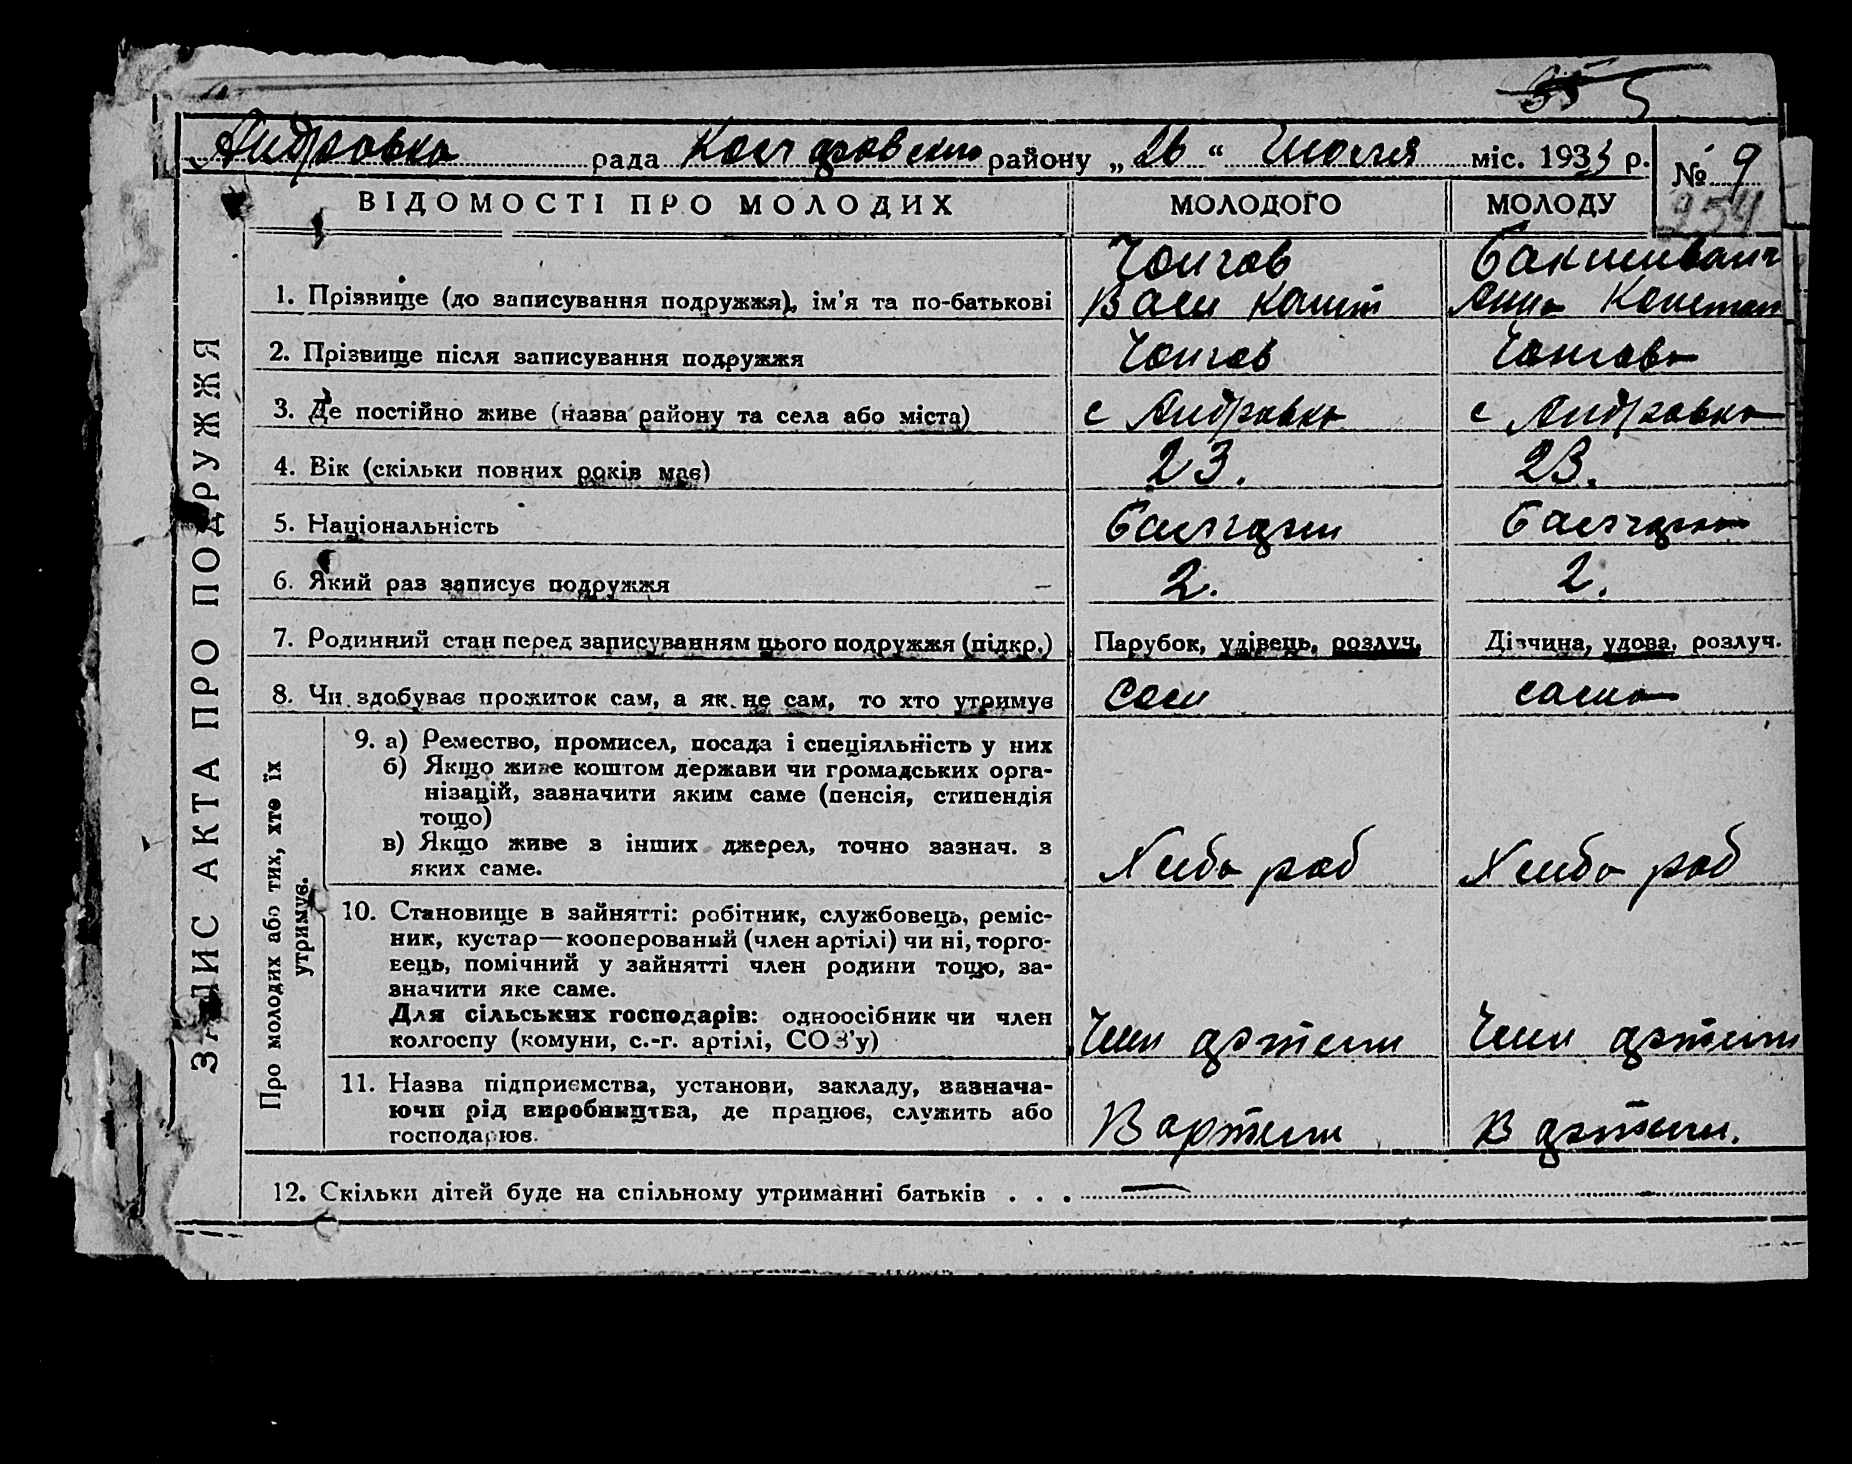 5
Андровка рада районy „26“ Июля міс. 1933 р. № 9
254
ВІДОМОСТІ ПРО МОЛОДИХ МОЛОДОГО МОЛОДУ
ЗАПИС АКТА ПРО ПОДРУЖЖЯ
Чонгов
1. Прізвище (до записування подружжя), ім’я та по-батькові Васи Конст Анна Констан
2. Прізвище після записування подружжя Чонгов Чонгова
3. Де постійно живе (назва району та села або міста) с Андровка с Андровка
4. Вік (скільки повних років має) 23. 23.
5. Національність Балгарин Балгарка
6. Який раз записує подружжя – 2. 2.
7. Родинний стан перед записуванням цього подружжя (підкр.) Парубок, удівець, розлуч. Дівчина, удова, розлуч.
8. Чи здобуває прожиток сам, а як не сам, то хто утримує Сам сама
Про молодих або тих, хто їх
утримує.
9. а) Ремество, промисел, посада і спеціяльність у них
б) Якщо живе коштом держави чи громадських орга-
нізацій, зазначити яким саме (пенсія, стипендія
тощо)
в) Якщо живе з інших джерел, точно зазнач. з
яких саме. Хлебо роб Хлебо роб
10. Становище в зайнятті: робітник, службовець, реміс-
ник, кустар—кооперований (член артілі) чи ні, торго-
вець, помічний у зайнятті член родини тощо, за-
значити яке саме.
Для сільських господарів: одноосібник чи член
колгоспу (комуни, с.-г. артілі, СОЗ’у) Член артели Член артели
11. Назва підприємства, установи, закладу, зазнача-
ючи рід виробництва, де працює, служить або
господарює. В артели В артели.
12. Скільки дітей буде на спільному утриманні батьків . . . —